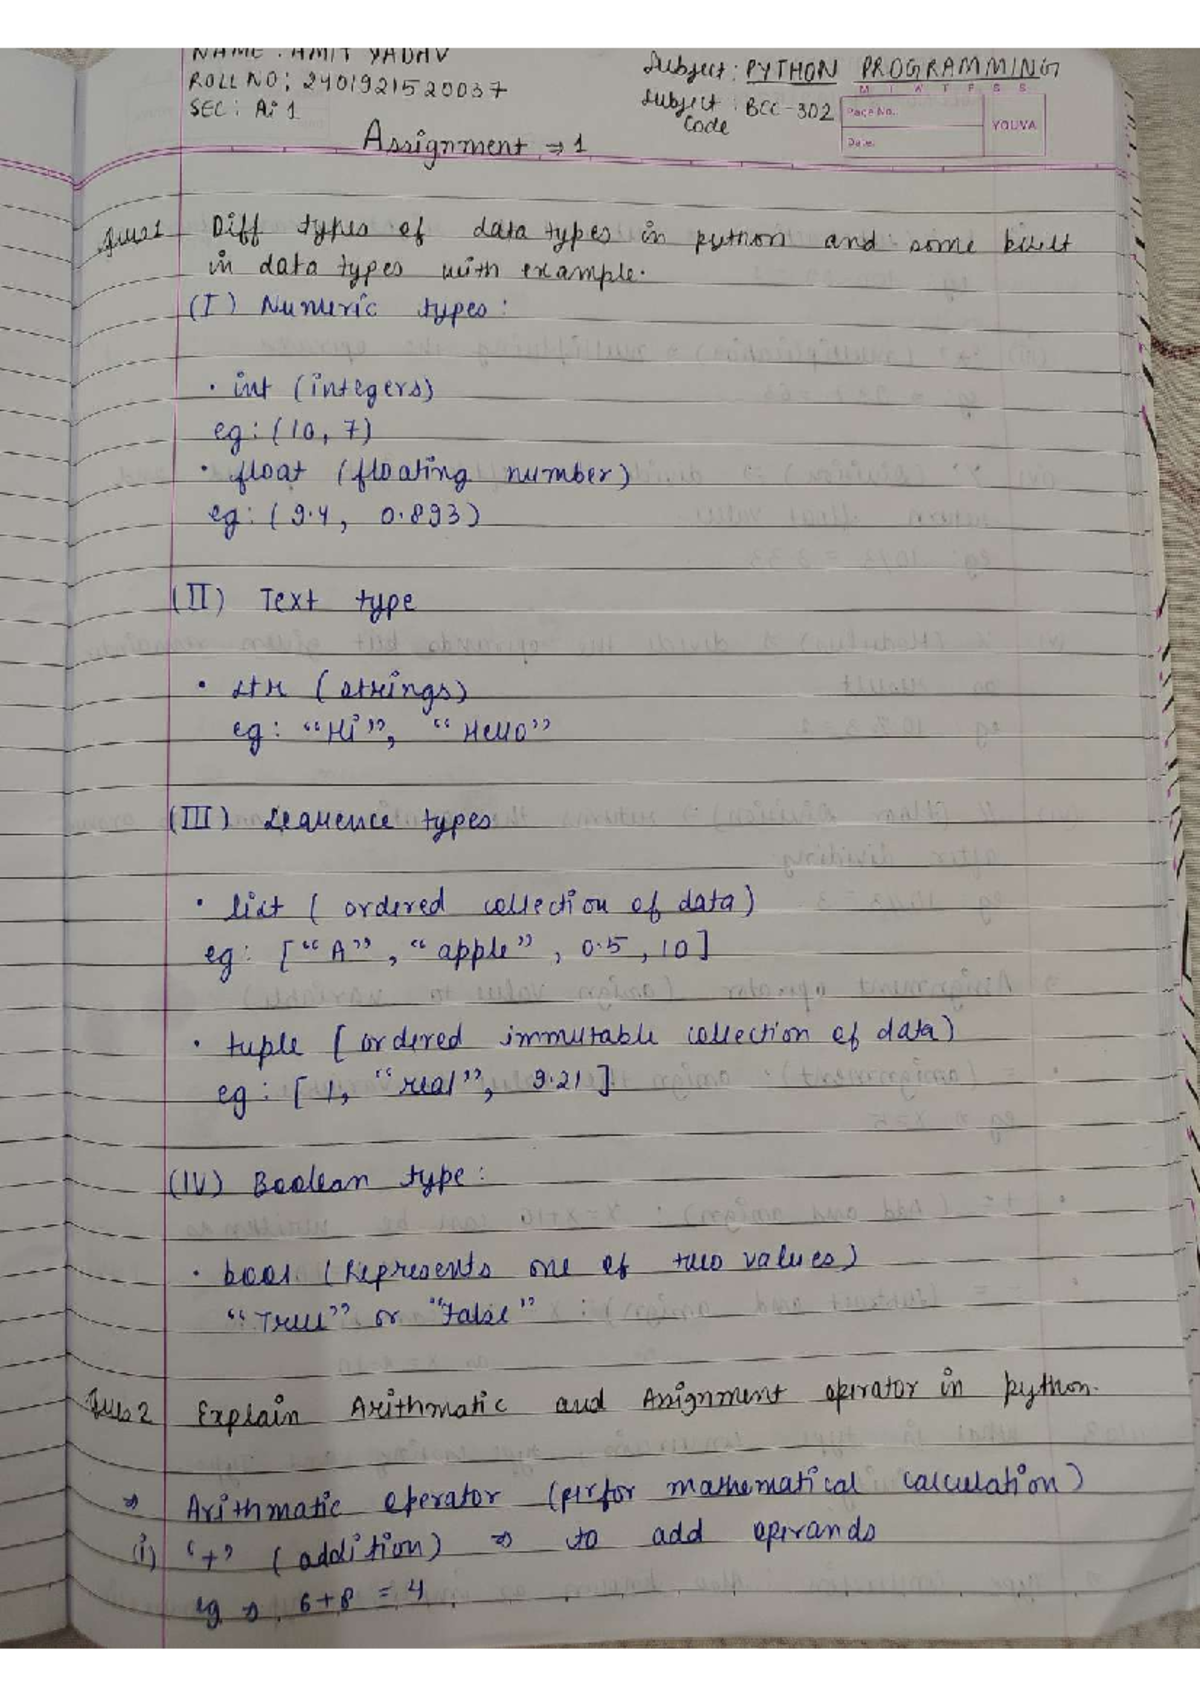 NAME : AMIT YADAV
ROLL NO: 2401921520037
SEC: Ai 1
Subject: PYTHON PROGRAMMING
Subject Code : BCC-302
M T W T F S S
Page No.
Date:
YOUVA
Assignment ⇒ 1
Ques1 Diff types of data types in python and some built
in data types with example.
(I) Numeric types:
• int (integers)
eg: (10, 7)
• float (floating number)
eg: (9.4, 0.893)
(II) Text type
• str (strings)
eg: "Hi", "Hello"
(III) Sequence types
• list ( ordered collection of data)
eg: ["A", "apple", 0.5, 10]
• tuple [ordered immutable collection of data)
eg: [1, "real", 9.21]
(IV) Boolean type:
• bool (Represents one of two values)
"True" or "False"
Ques 2 Explain Arithmatic and Assignment operator in python.
⇒ Arithmatic operator (perfor mathematical calculation)
(i) '+' (addition) ⇒ to add operands
eg ⇒ 6+8 = 4